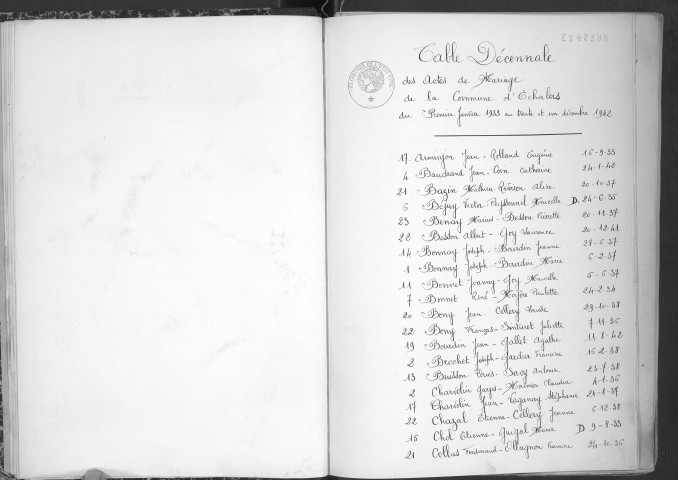 ES 62395
Table Décennale
des Actes de Mariage
de la Commune d'Echalas
du Premier Janvier 1933 au trente et un décembre 1942
17 Arminjon Jean - Rolland Eugénie 16-9-33
4 Baudrand Jean - Coin Catherine 24-1-42
21 Bazin Mathieu - Rivoiron Alice 20-10-37
6 Bajuy Victor - Puyssonnel Marcelle D. 24-6-35
23 Benay Marius - Besson Pierrette 20-11-37
22 Besson Albert - Joy Laurence 20-12-41
14 Bonnay Joseph - Bourdin Jeanne 28-6-37
1 Bonnay Joseph - Bourdin Marie 6-2-37
11 Bonnet Joanny - Joy Marcelle 5-6-37
7 Bonnet René - Paulette 24-2-34
20 Bony Jean - Cellery 29-10-38
22 Bony François - Juliette 7-11-36
19 Bourdin Jean - Gallet Agathe 11-8-42
2 Brochet Joseph - Jardier Francine 16-2-38
13 Buisson Louis - Savy Antonia 23-7-38
2 Charvolin Georges - Claudia 4-1-36
17 Charvolin Jean - Vaganay Stéphanie 21-8-37
22 Chazal Etienne - Cellery Jeanne 6-12-38
15 Chol Etienne - Guigal Marie D 9-8-33
21 Collus Ferdinand - Ollagnon Francine 24-10-36